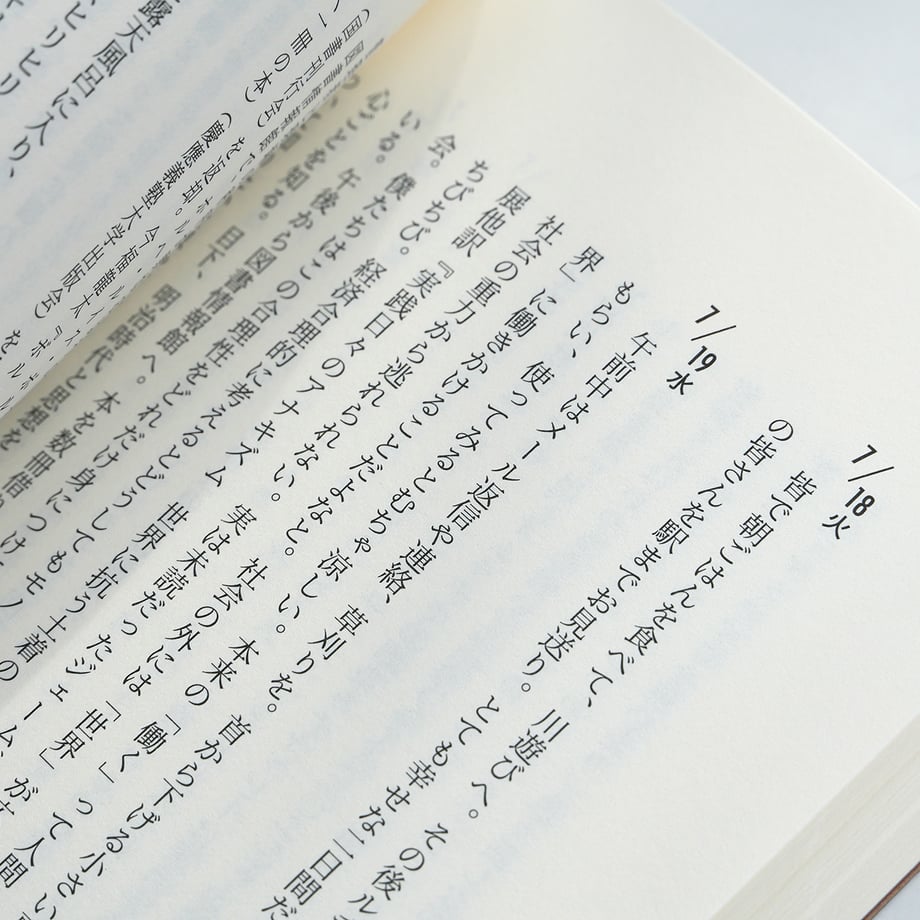 7/18火
皆で朝ごはんを食べて、川遊びへ。その後ル
の皆さんを駅までお見送り。とても幸せな二日間だ
7/19水
午前中はメール返信や連絡、草刈りを。首から下げる小さい
もらい、使ってみるとむちゃ涼しい。本来の「働く」って人間
界」に働きかけることだよなと。社会の外には「世界」が
社会の重力から逃れられない。実は未読だったジェーム
展他訳『実践日々のアナキズム 世界に抗う土着の
ちびちび。経済合理的に考えるとどうしてもモノ
会。僕たちはこの合理性をどれだけ身につけ
いる。午後から図書情報館へ。本を数冊借り
心ごとを知る。日下、明治時代と思想を
（慶應義塾大学出版会）を
（国書刊行会）を返却。今福龍太
一冊の本）
露天風呂に入り、
ヒリヒリ